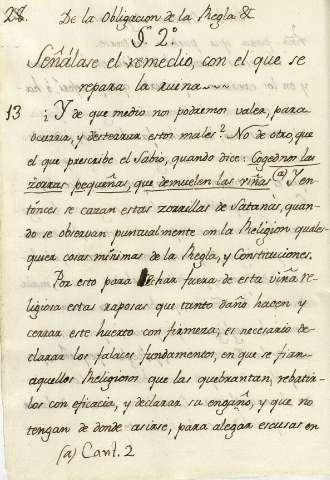 28. De la Obligacion de la Regla &
§.º 2.º
Señálase el remedio, con el que se
repara la ruina
13 ¿Y de que medio nos podremos valer, para
ocurrir, y desterrar estos males? No de otro, que
el que prescribe el Sabio, quando dice: Cogednos las
zorras pequeñas, que demuelen las viñas (a) Y en
tónces se cazan estas zorrillas de Satanas, quan-
do se observan puntualmente en la Religion quales-
quier cosas mínimas de la Regla, y Constituciones.
Por esto para echar fuera de esta viña re-
ligiosa estas raposas que tanto daño hacen y
cerrar este huerto con firmeza; es necesario de-
clarar los falaces fundamentos, en que se fian
aquellos Religiosos que las quebrantan, rebatir-
los con eficacia, y declarar su engaño, y que no
tengan de donde asirse, para alegar escusas en
(a) Cant. 2